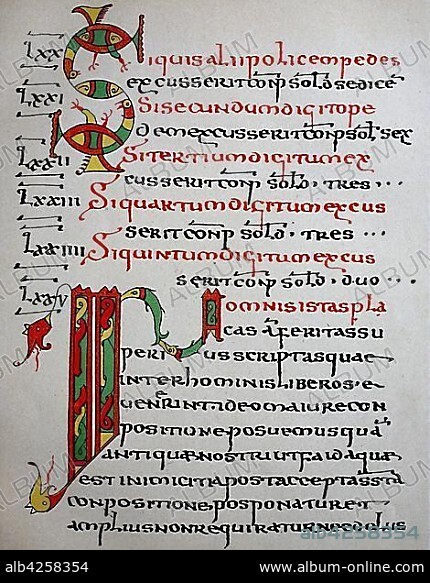 LXX Siquis alii policem pedes
excusserit conp sold sedice
LXXI Si secundum digito pe
dem excusserit conp sol sex
LXXII Si tertium digitum ex
cusserit conp sold · tres · · ·
LXXIII Si quartum digitum excus
serit conp sold · tres · · ·
LXXIIII Si quintum digitum excus
serit conp sold · duo · · ·
LXXV In omnis istas pla
cas aferitas su
peri us scriptas quae
inter hominis liberos e
uenerint ideo maiure con
positione posuemus qua
antiquae nostri ut faida quae
est inimicitia post accepta ssta
conpositione posponatur et
amplius non requiratur nec dolus
alb4258354
alb4258354 www.album-online.com